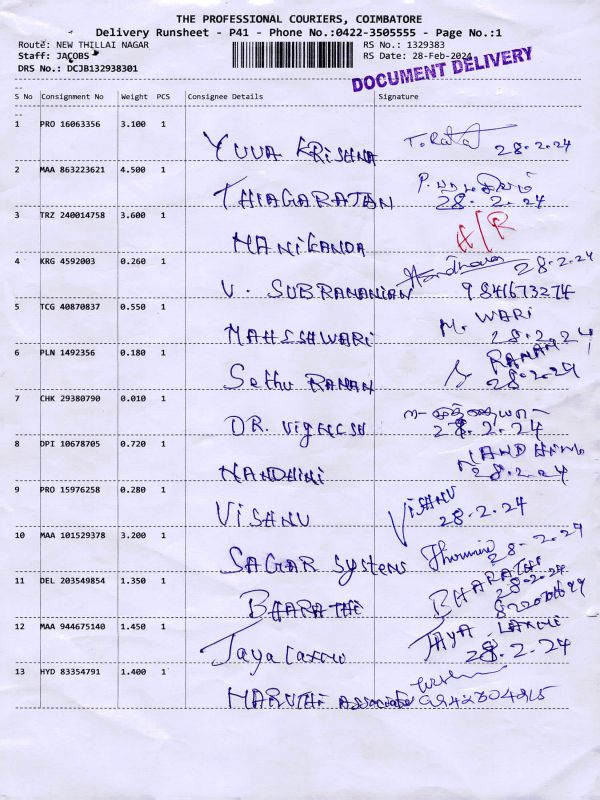 THE PROFESSIONAL COURIERS, COIMBATORE
Delivery Runsheet - P41 - Phone No.:0422-3505555 - Page No.:1
Route: NEW THILLAI NAGAR RS No.: 1329383
Staff: JACOBS RS Date: 28-Feb-2024
DRS No.: DCJB132938301
DOCUMENT DELIVERY
S No Consignment No Weight PCS Consignee Details Signature
1 PRO 16063356 3.100 1
YUVA KRISHNA 28.2.24
2 MAA 863223621 4.500 1
THIAGARAJAN 28.2.24
3 TRZ 240014758 3.600 1
MANIKANDA A/R
4 KRG 4592003 0.260 1 28-2-24
V. SUBRAMANIAN 9841673274
5 TCG 40870837 0.550 1 M. WARI
MAHESHWARI 28.2.24
6 PLN 1492356 0.180 1 RAMAN
Sethu RAMAN 28.2.24
7 CHK 29380790 0.010 1
DR. VIGNESH 28.2.24
8 DPI 10678705 0.720 1 NANDHINI
NANDHINI 28.2.24
9 PRO 15976258 0.280 1 VISHNU
VISHNU 28.2.24
10 MAA 101529378 3.200 1 28-2-24
SAGAR Systems
11 DEL 203549854 1.350 1 BHARATHI
28.2.24
BHARATHI
12 MAA 944675140 1.450 1 JAYA LAXMI
Jaya Laxmi 28.2.24
13 HYD 83354791 1.400 1
MARUTHI Associate